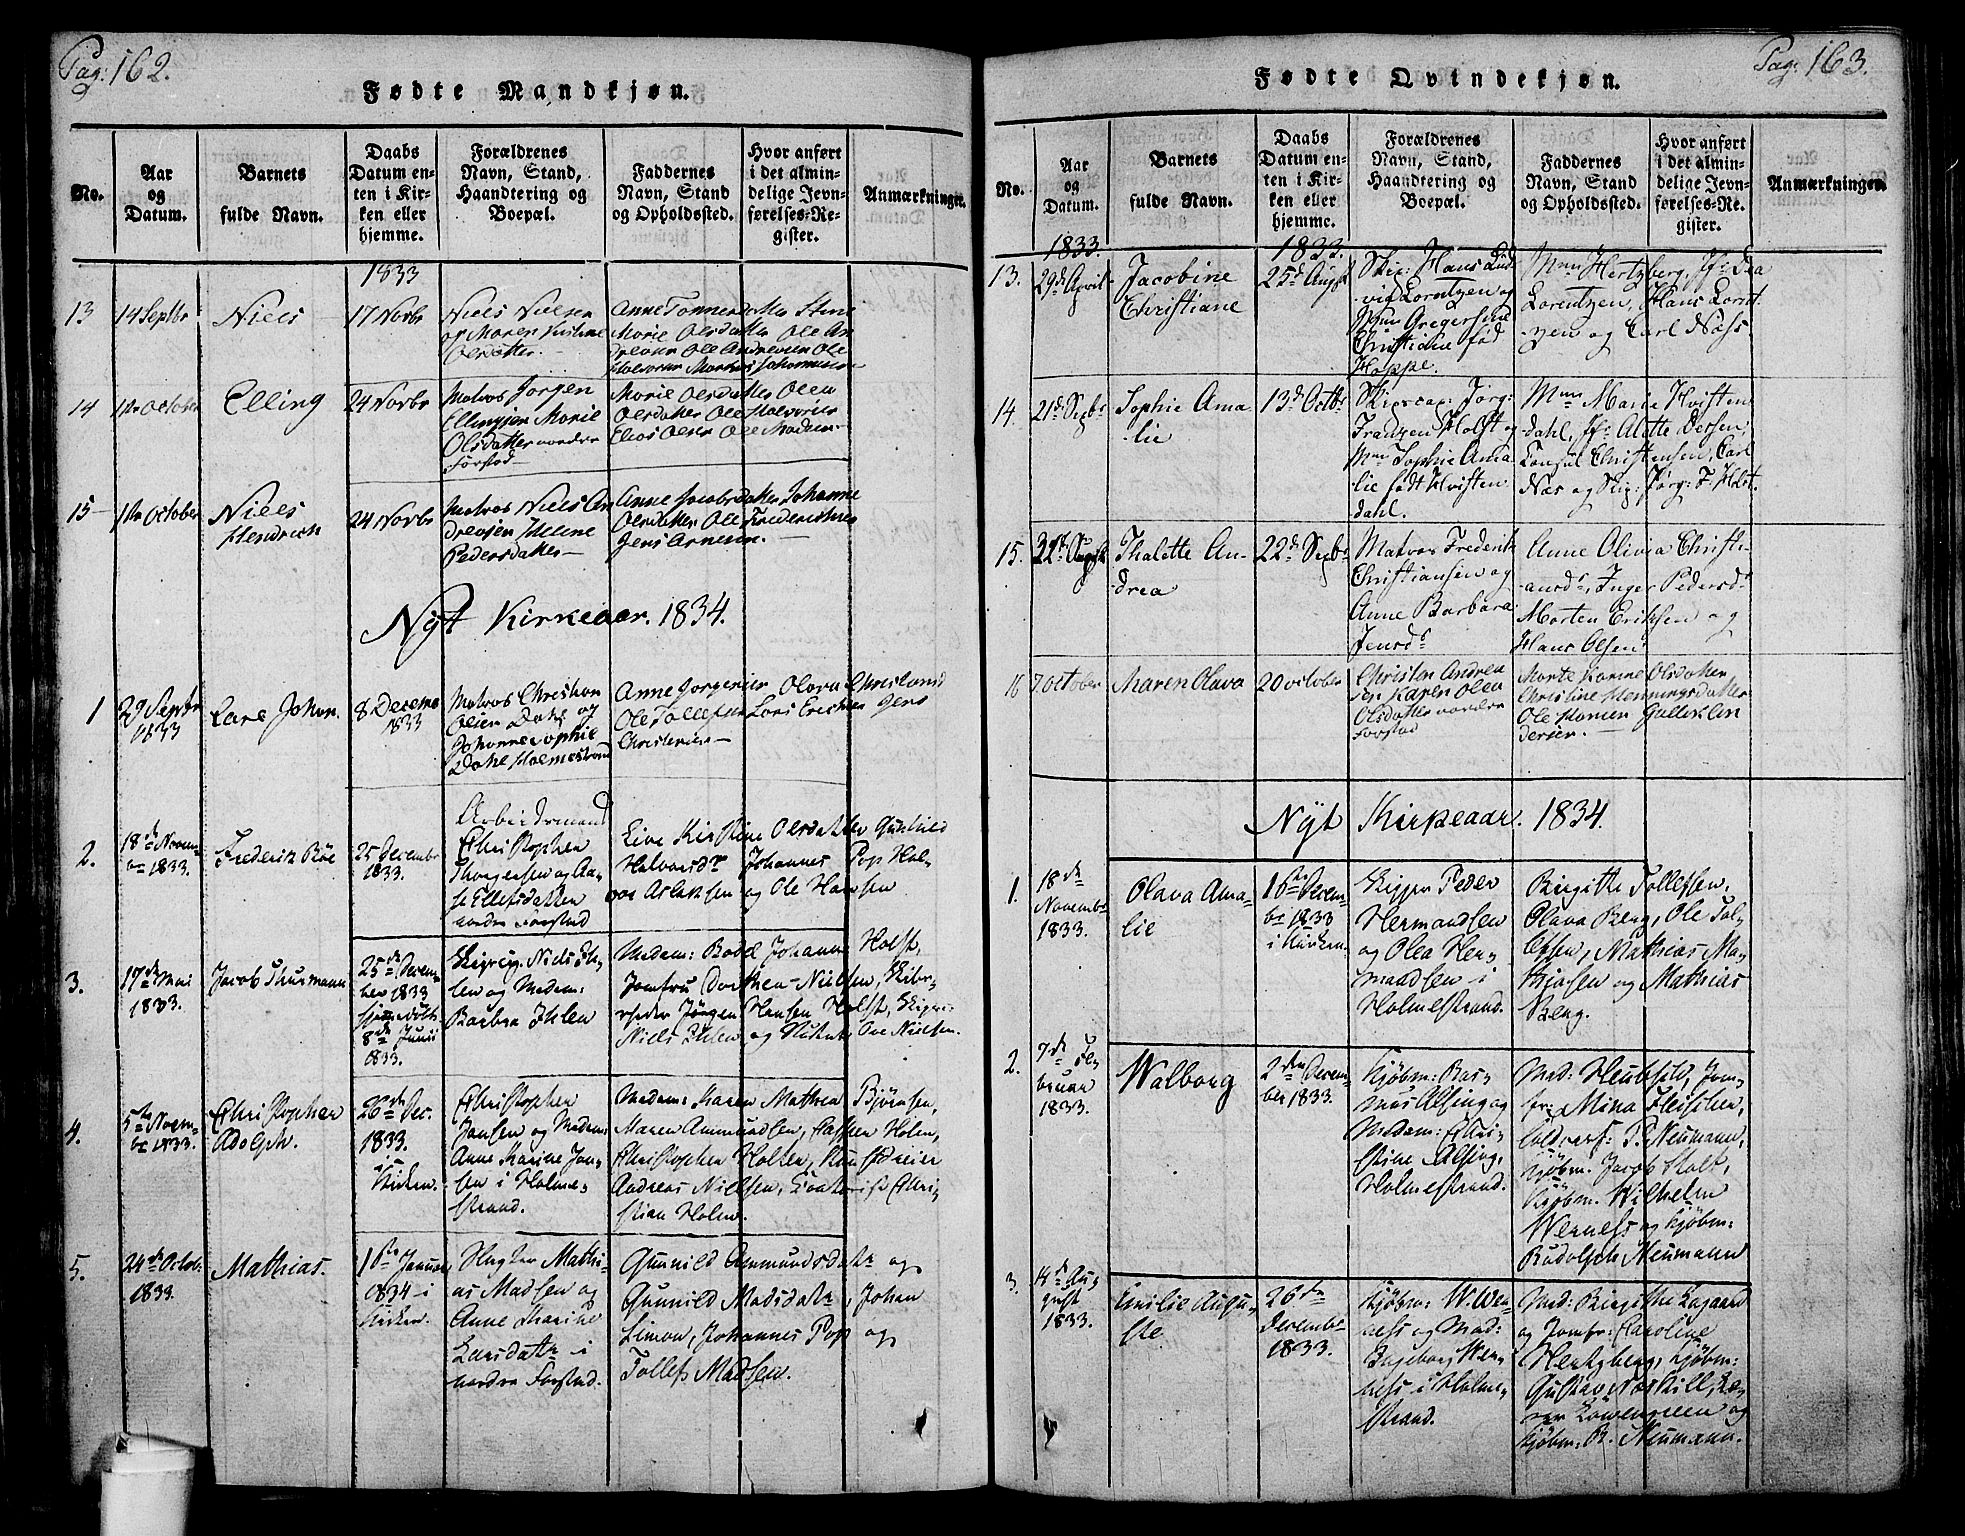 Pag: 162.
Fødte Mandkjøn.
No.
Aar og Datum.
Barnets fulde Navn.
Daabs Datum enten i Kirken eller hjemme.
Forældrenes Navn, Stand, Haandtering og Boepæl.
Faddernes Navn, Stand og Opholdssted.
Hvor anført i det almindelige Jevnførelses-Register.
Anmærkninger.
1833
13
14 Septbr
Niels
17 Novbr
Niels Nielsen
og Maren Kirstine
Olsdatter
Anne Tonnesdatter Stine
Marie Olsdatter Ole An
dreasen Ole Andresen Ole
Halvorsen Markus Johannesen
14
1ste October
Elling
24 Novbr
Matros Jørgen
Ellingsen Marie
Olsdatter nordre
Forstad
Marie Olsdatter Olea
Olsdatter Ole Halvorsen
Elias Olsen Ole Madsen
15
1ste October
Niels
Hendrich
24 Novbr
Matros Niels An
dresen Helene
Pedersdatter
Anne Jacobsdatter Johanne
Olsdatter Ole Frederichsen
Jens Arnesen.
Nyt Kirkeaar. 1834.
1
29 Septbr
1833
Carl Johan.
8 Decembr
1833
Matros Christian
Olsen Dahl og
Johanne Sophie
Dahl Holmestrand
Anne Jørgensen Olava Christiansd
Ole Tollefsen Lars Erichsen Jens
Christensen
2.
18de Novem-
br 1833.
Frederik Röe
25 Decembr
1833.
Arbeidsmand
Christopher
Thorgersen og Aa-
se Ellefsdatter
nordre Forstad
Live Kirstine Olsdatter Gunhild
Halvorsdr Johannes Pop Hal-
vor Aslaksen og Ole Hansen
3.
17de Mai
1833.
Jacob Thurmann
25de Decem-
ber 1833
hjemdøbt
8de Junii
1833.
Skipscp. Niels Ih-
len og Madm:
Barbra Ihlen
Madam: Bodil Johanna Holst,
Jomfru Dorthea Nielsen, Skibs-
rheder Jörgen Hansen Holst, Skipper
Niels Ihlen og Student Ove Nielsen.
4.
5te Novem-
br 1833.
Christopher
Adolph.
26de Dec.
1833.
i
Kirken.
Christopher
Jansen og Madm:
Anne Karine Jan-
sen i Holme-
strand.
Madam: Karen Mathea Björnsen,
Maren Ammundsen, Casper Holm,
Christopher Holter,
Andreas Nielsen, Chri-
stian Holm.
5.
24de Octob.
1833.
Mathias.
1ste Januar
1834 i
Kirken.
Mathi-
as Madsen og
Anne Karine
Larsdatr i
nordre Forstad.
Gunild Ammundsdatr og
Gunild Madsdatr, Johan
Simon, Johannes Pop og
Tollefs Madsen.
Pag: 163.
Fødte Qvindekjøn.
No.
Aar og Datum.
Barnets fulde Navn.
Daabs Datum enten i Kirken eller hjemme.
Forældrenes Navn, Stand, Haandtering og Boepæl.
Faddernes Navn, Stand og Opholdssted.
Hvor anført i det almindelige Jevnførelses-Register.
Anmærkninger.
1833.
1833.
13.
29de April
Jacobine
Christiane
25de Augst
Skip: Hans Lud
vig Lorentzen og
Mme Gregersine
Christiane fød
Hoppe.
Mme Hertzberg, Jfr: Dea
Lorentzen, Hans Lorent
zen og Carl Næss.
14.
21de Sepbr
Sophie Ama
lie
13de Octbr
Skipscap: Jørg:
Frantzen Holst og
Mme Sophie Ama
lie født Hvisten
dahl.
Mme Marie Hvisten
dahl, Jfr: Alette Dessen,
Consul Christensen, Carl
Næs og Skip: Jørg: F. Holst.
15.
Thalette An-
drea
22de Sepbr
Matros Frederik
Christiansen og
Anne Barbara
Jensdr
Anne Olivia Christi-
ansdr, Inger Pedersdr
Morten Eriksen og
Hans Olsen
16
7. October
Maren Olava
20 October
Christen Andrea
sen Karen Olea
Olsdatter nordre
Forstad
Marte Karine Olsdatter
Christine Henningsdatter
Ole Hansen Gullik An
dersen.
Nÿt Kirkeaar. 1834.
1.
18de
Novembr
1833.
Olava Ama-
lie
16de Decem-
br 1833
i Kirken.
Skipper Peder
Hermandsen
og Olea Her-
mandsen i
Holmestrand.
Birgithe Tollefsen,
Olava Berg, Ole Tol-
lefsen, Mathias Ma-
thiasen og Mathias
Berg.
2.
7de Fe-
bruar
1833.
Walborg
2den Decem-
ber 1833.
Kjöbm: Ras-
mus Alsing og
Madam: Chri-
stine Alsing,
Holmestrand.
Mad: Heutsild, Jom-
fr: Mina Fleischer,
P. Neumann,
Kjöbm. Jacob Holt,
Kjöbm: Wilhelm
Werness og Kjöbm:
Rudolph Neumann
3.
14de Au-
gust
1833.
Emilie Augu-
ste
26de
December
1833.
Kjöbm: W. Wer-
ness og Mad:
Ingeborg Wer-
ness i Holme-
strand.
Mad: Birgithe Aagaard
og Jomfr: Caroline
Hertzberg, Kjöbm:
Gustav Næskill,
og
Kjöbm: R. Neumann.